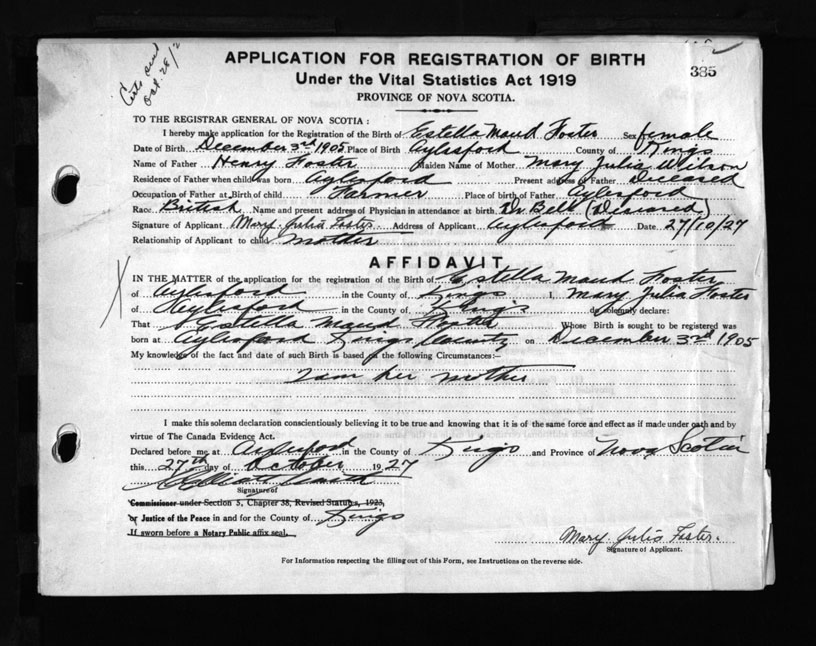 Certs sent
Oct. 28/2
385
APPLICATION FOR REGISTRATION OF BIRTH
Under the Vital Statistics Act 1919
PROVINCE OF NOVA SCOTIA.
TO THE REGISTRAR GENERAL OF NOVA SCOTIA:
I hereby make application for the Registration of the Birth of Estella Maud Foster Sex female
Date of Birth December 3rd 1905 Place of Birth Aylesford County of Kings
Name of Father Henry Foster Maiden Name of Mother Mary Julia Wilson
Residence of Father when child was born Aylesford Present address of Father Deceased
Occupation of Father at Birth of child Farmer Place of birth of Father Aylesford
Race British Name and present address of Physician in attendance at birth Dr Bell (Deceased)
Signature of Applicant Mary Julia Foster Address of Applicant Aylesford Date 27/10/27
Relationship of Applicant to child mother
AFFIDAVIT
IN THE MATTER of the application for the registration of the Birth of Estella Maud Foster
of Aylesford in the County of Kings I, Mary Julia Foster
of Aylesford in the County of Kings do solemnly declare:
That Estella Maud Foster Whose Birth is sought to be registered was
born at Aylesford Kings County on December 3rd 1905
My knowledge of the fact and date of such Birth is based on the following Circumstances:—
I am her mother
I make this solemn declaration conscientiously believing it to be true and knowing that it is of the same force and effect as if made under oath and by
virtue of The Canada Evidence Act.
Declared before me at Aylesford in the County of Kings and Province of Nova Scotia
this 27th day of October 1927
Signature of
Commissioner under Section 5, Chapter 38, Revised Statutes, 1923,
or Justice of the Peace in and for the County of Kings
If sworn before a Notary Public affix seal.
Mary Julia Foster.
Signature of Applicant.
For Information respecting the filling out of this Form, see Instructions on the reverse side.